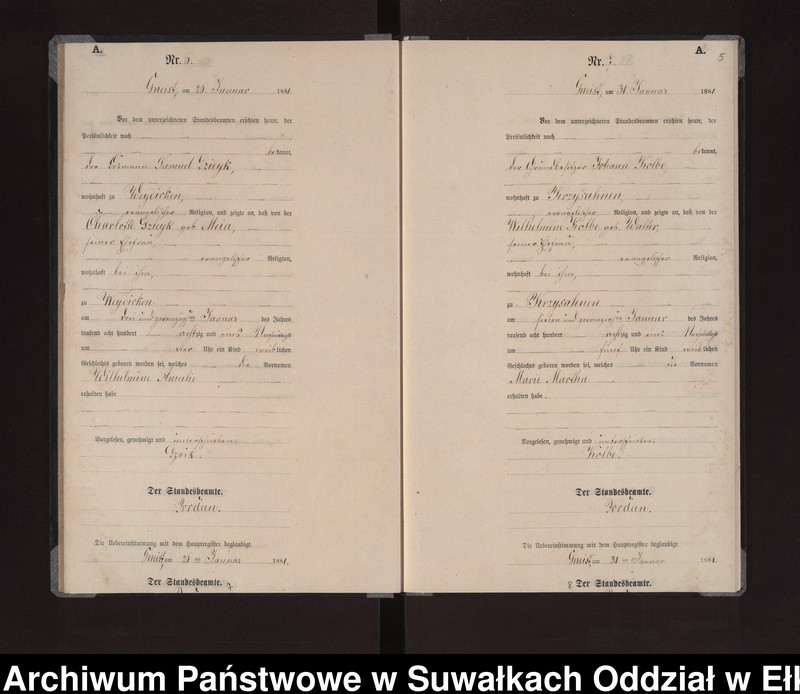 A.
Nr.
Gneist, am 29 Januar 1881.
Vor dem unterzeichneten Standesbeamten erschien heute, der
Persönlichkeit nach
bekannt,
der Losmann Samuel
wohnhaft zu Weydicken,
evangelischer Religion, und zeigte an, daß von der
Charlotte geb.
seiner Ehefrau,
evangelischer Religion,
wohnhaft bei ihm,
zu Weydicken
am drei und zwanzigsten Januar des Jahres
tausend acht hundert achtzig und eins Nachmittags
um vier Uhr ein Kind weiblichen
Geschlechts geboren worden sei, welches die Vornamen
Wilhelmine Amalie
erhalten habe.
Vorgelesen, genehmigt und unterschrieben.
Der Standesbeamte.
Jordan.
Die Uebereinstimmung mit dem Hauptregister beglaubigt.
Gneist, am 29 ten Januar 1881.
Der Standesbeamte.
7
A.
5
Nr.
Gneist, am 31 Januar 1881.
Vor dem unterzeichneten Standesbeamten erschien heute, der
Persönlichkeit nach
bekannt,
der Grundbesitzer Johann Kolbe,
wohnhaft zu
evangelischer Religion, und zeigte an, daß von der
Wilhelmine Kolbe geb. Walter,
seiner Ehefrau,
evangelischer Religion,
wohnhaft bei ihm,
zu
am sieben und zwanzigsten Januar des Jahres
tausend acht hundert achtzig und eins Nachmittags
um fünf Uhr ein Kind weiblichen
Geschlechts geboren worden sei, welches die Vornamen
Marie Martha
erhalten habe.
Vorgelesen, genehmigt und unterschrieben.
Kolbe.
Der Standesbeamte.
Jordan.
Die Uebereinstimmung mit dem Hauptregister beglaubigt.
Gneist, am 31 ten Januar 1881.
8 Der Standesbeamte.
Archiwum Państwowe w Suwałkach Oddział w Eł